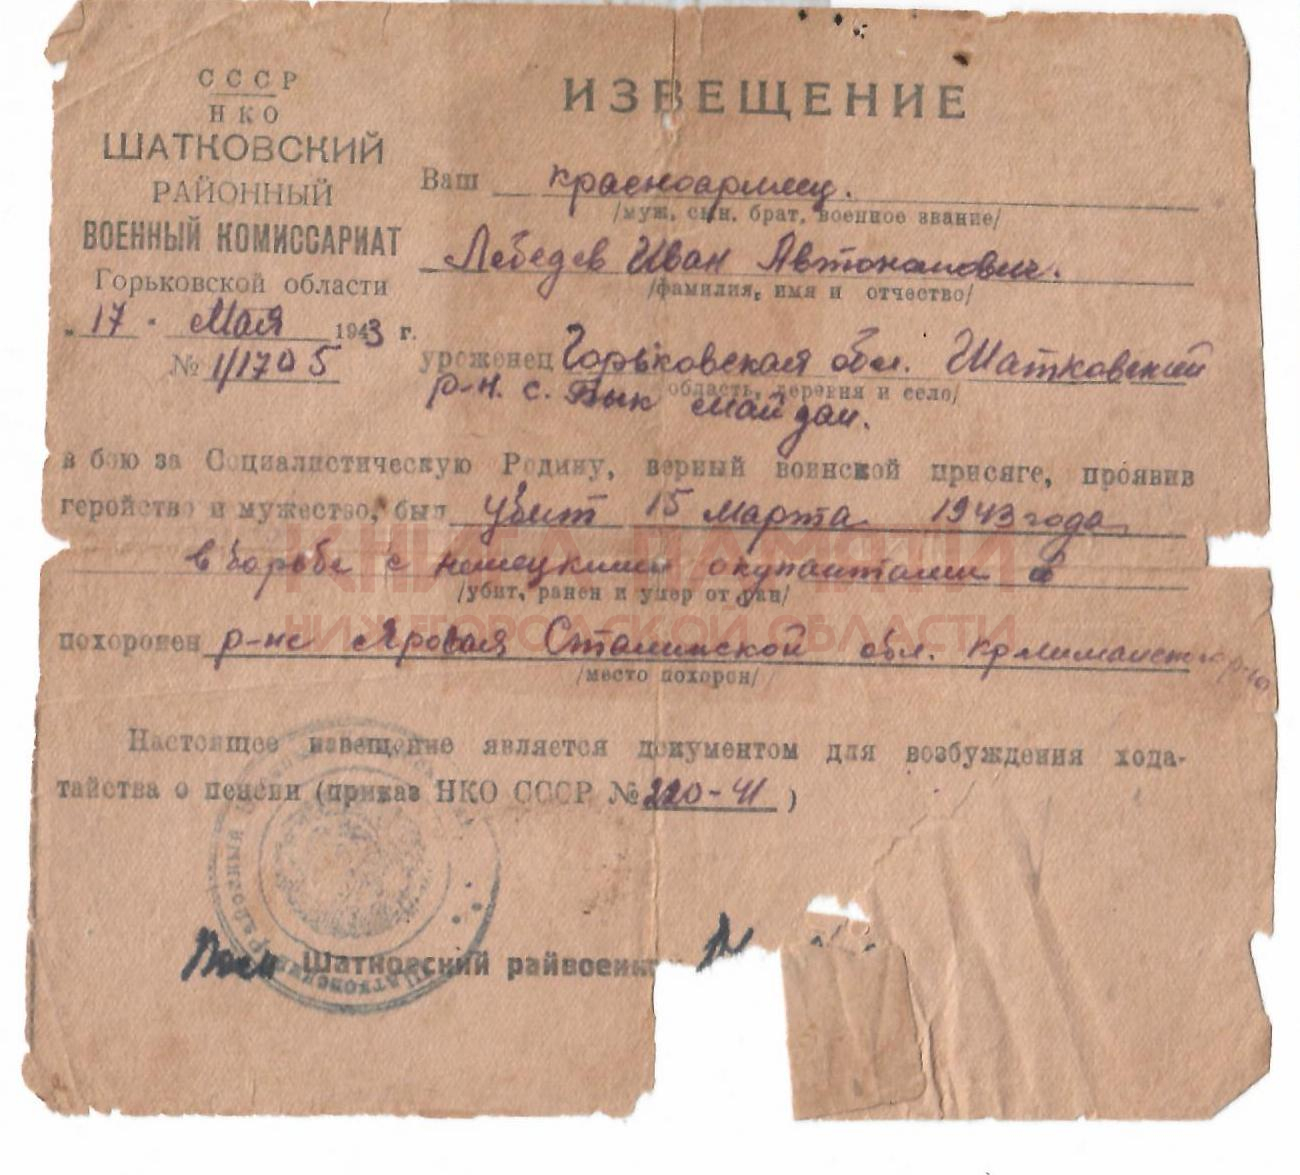 СССР
НКО
ШАТКОВСКИЙ
РАЙОННЫЙ
ВОЕННЫЙ КОМИССАРИАТ
Горьковской области
„17" Мая 1943 г.
№ 1/1705
ИЗВЕЩЕНИЕ
Ваш красноармеец.
/муж, сын, брат, военное звание/
Лебедев Иван Автономович.
/фамилия, имя и отчество/
уроженец Горьковская обл. Шатковский
область, деревня и село/
р-н. с. Вык Майдан.
в бою за Социалистическую Родину, верный воинской присяге, проявив
геройство и мужество, был убит 15 марта 1943 года
в борьбе с немецкими окупантами в
/убит, ранен и умер от ран/
похоронен р-не Яровая Сталинской обл.
/место похорон/
Настоящее извещение является документом для возбуждения хода-
тайства о пенсии (приказ НКО СССР № 220-41)
Шатковский райвоенк
КНИГА ПАМЯТИ
НИЖЕГОРОДСКОЙ ОБЛАСТИ